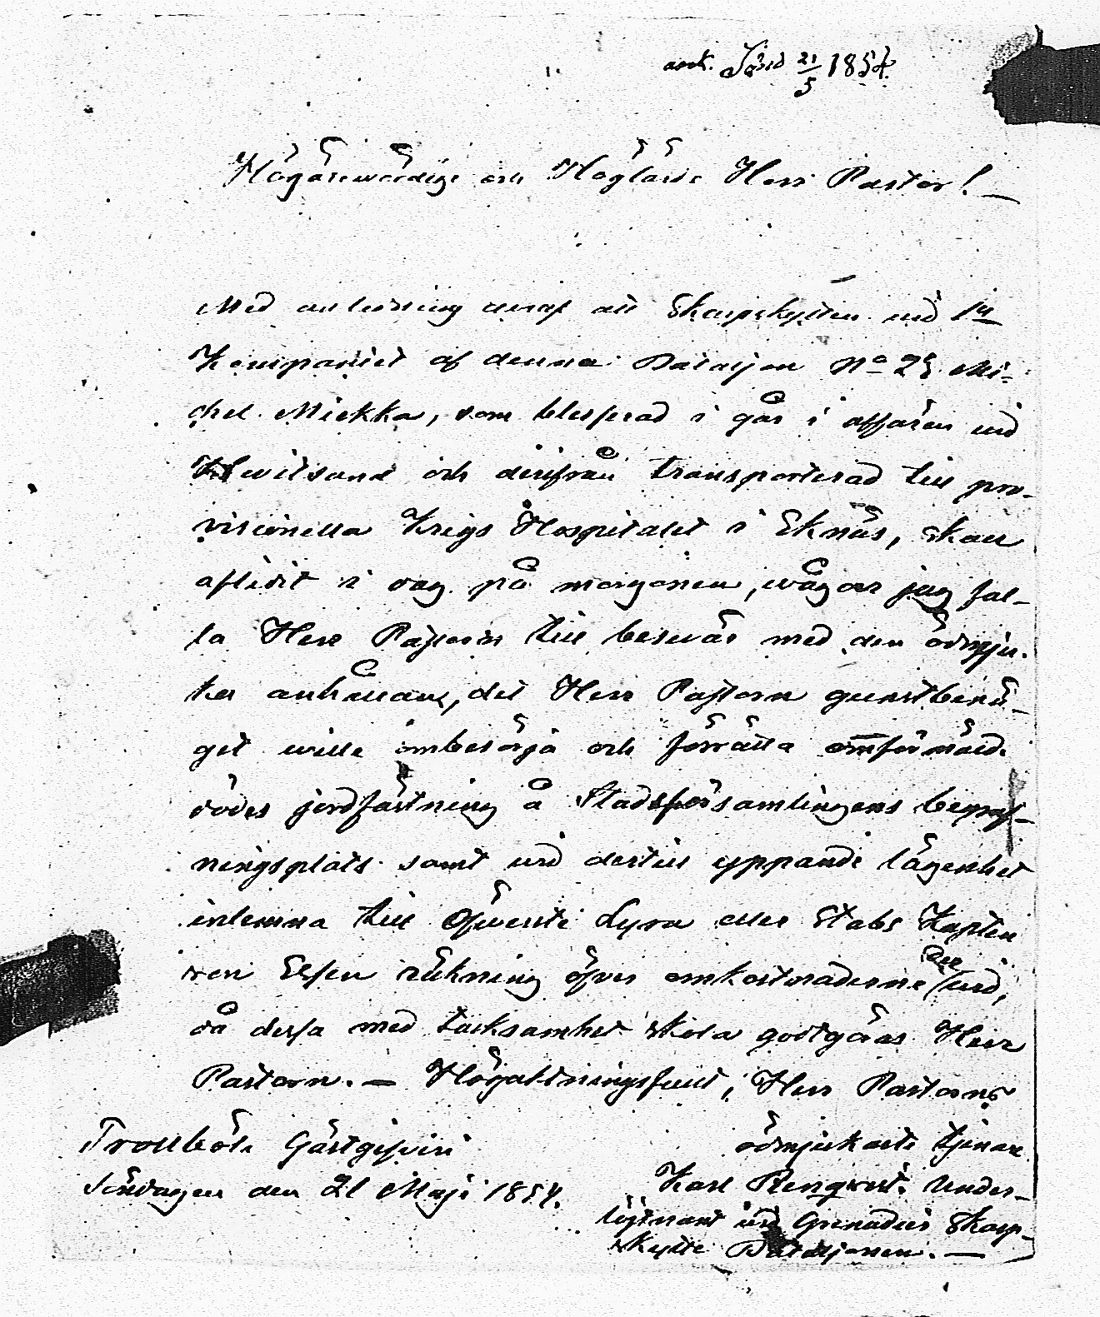 ank. d 21/5 1854.
Högärewördige och Höglärde Herr Pastor! —
Med anledning deraf att Skarpskytten vid 1a
Kompaniet af denna Bataljon No 25 Mi-
chel Miekka, som blesserad i går i affären vid
Hvitsand och derifrån transporterad till pro-
visionella Krigs Hospitalet i Eknäs, skall
aflidit i dag på morgonen, vågar jag fal-
la Herr Pastorn till besvär med den ödmju-
ka anhållan, det Herr Pastorn gunstbenä-
get wille ombesörja och förrätta omförmäld
dödes jordfästning å Stadsförsamlingens begraf-
ningsplats samt vid dertill yppande lägenhet
inlemna till Öfwerste Lyra eller Stabs Kapten
von Essen räkning öfver omkostnaderne dervid,
då dessa med tacksamhet skola godtgöras Herr
Pastorn. — Högaktningsfullt, Herr Pastorns
ödmjukaste tjenare
Trollböle Gästgifveri
Söndagen den 21 Maji 1854.
Karl Rengvist. Under-
löjtnant vid Grenadier Skarp-
skytte Bataljonen. —